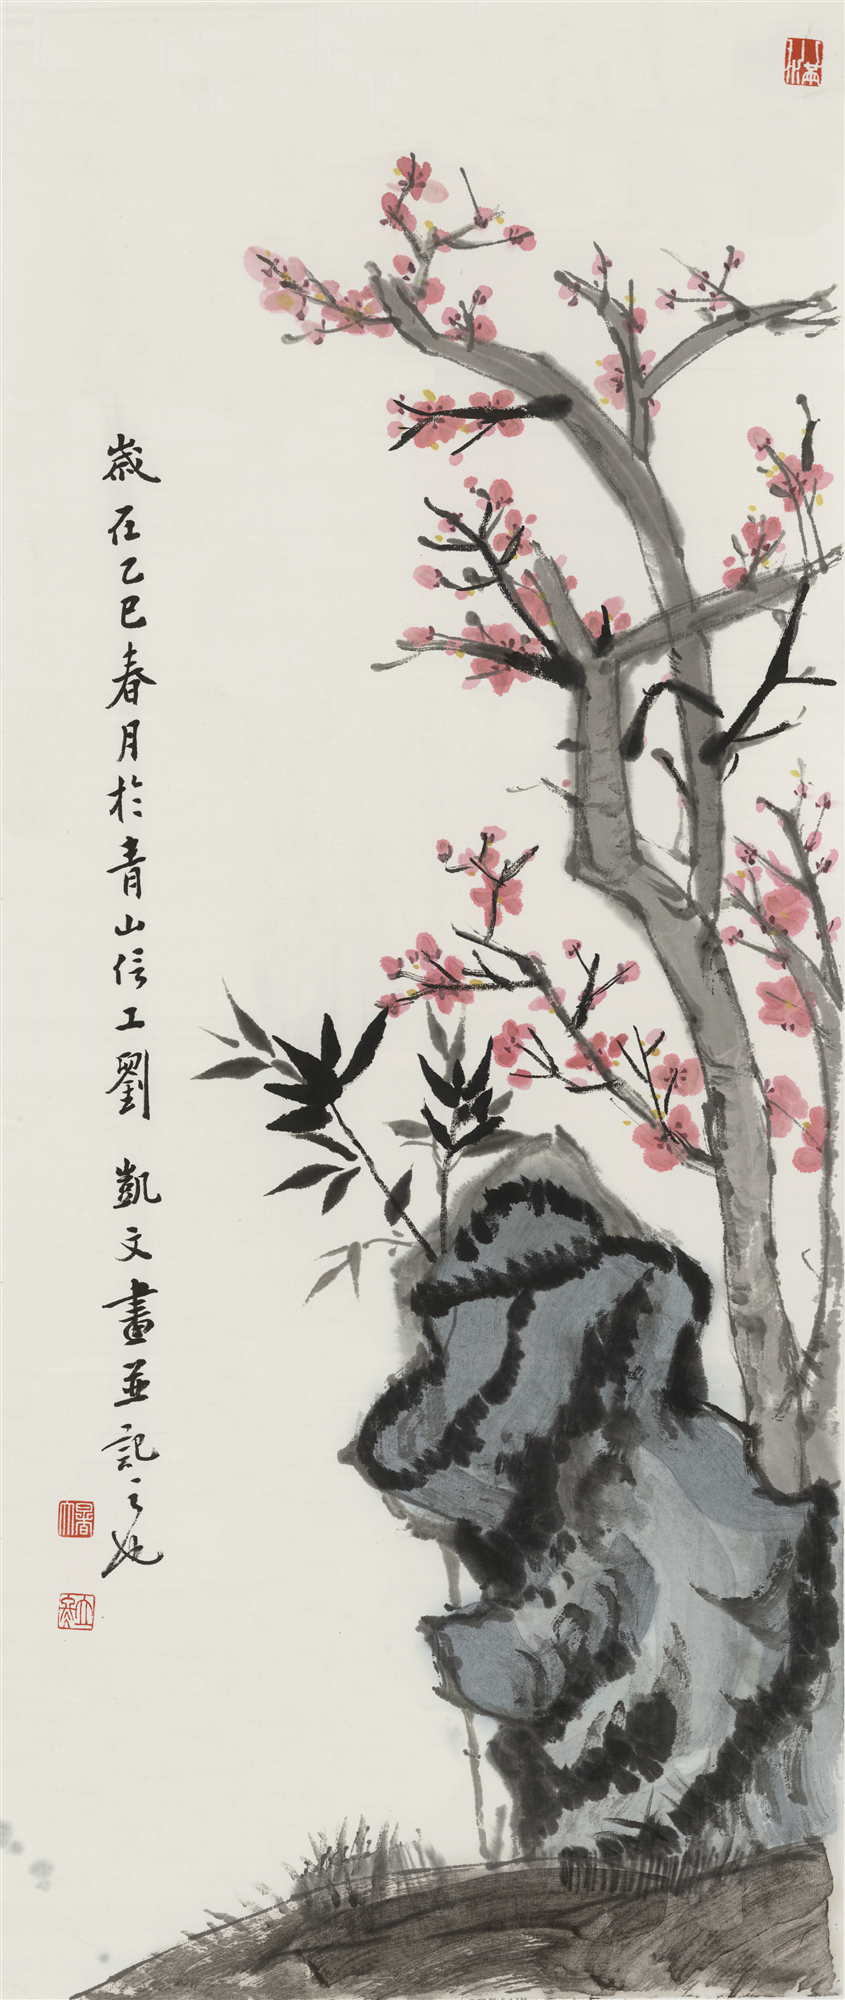 歲在乙巳春月於青山信工劉 凱文畫並記之也